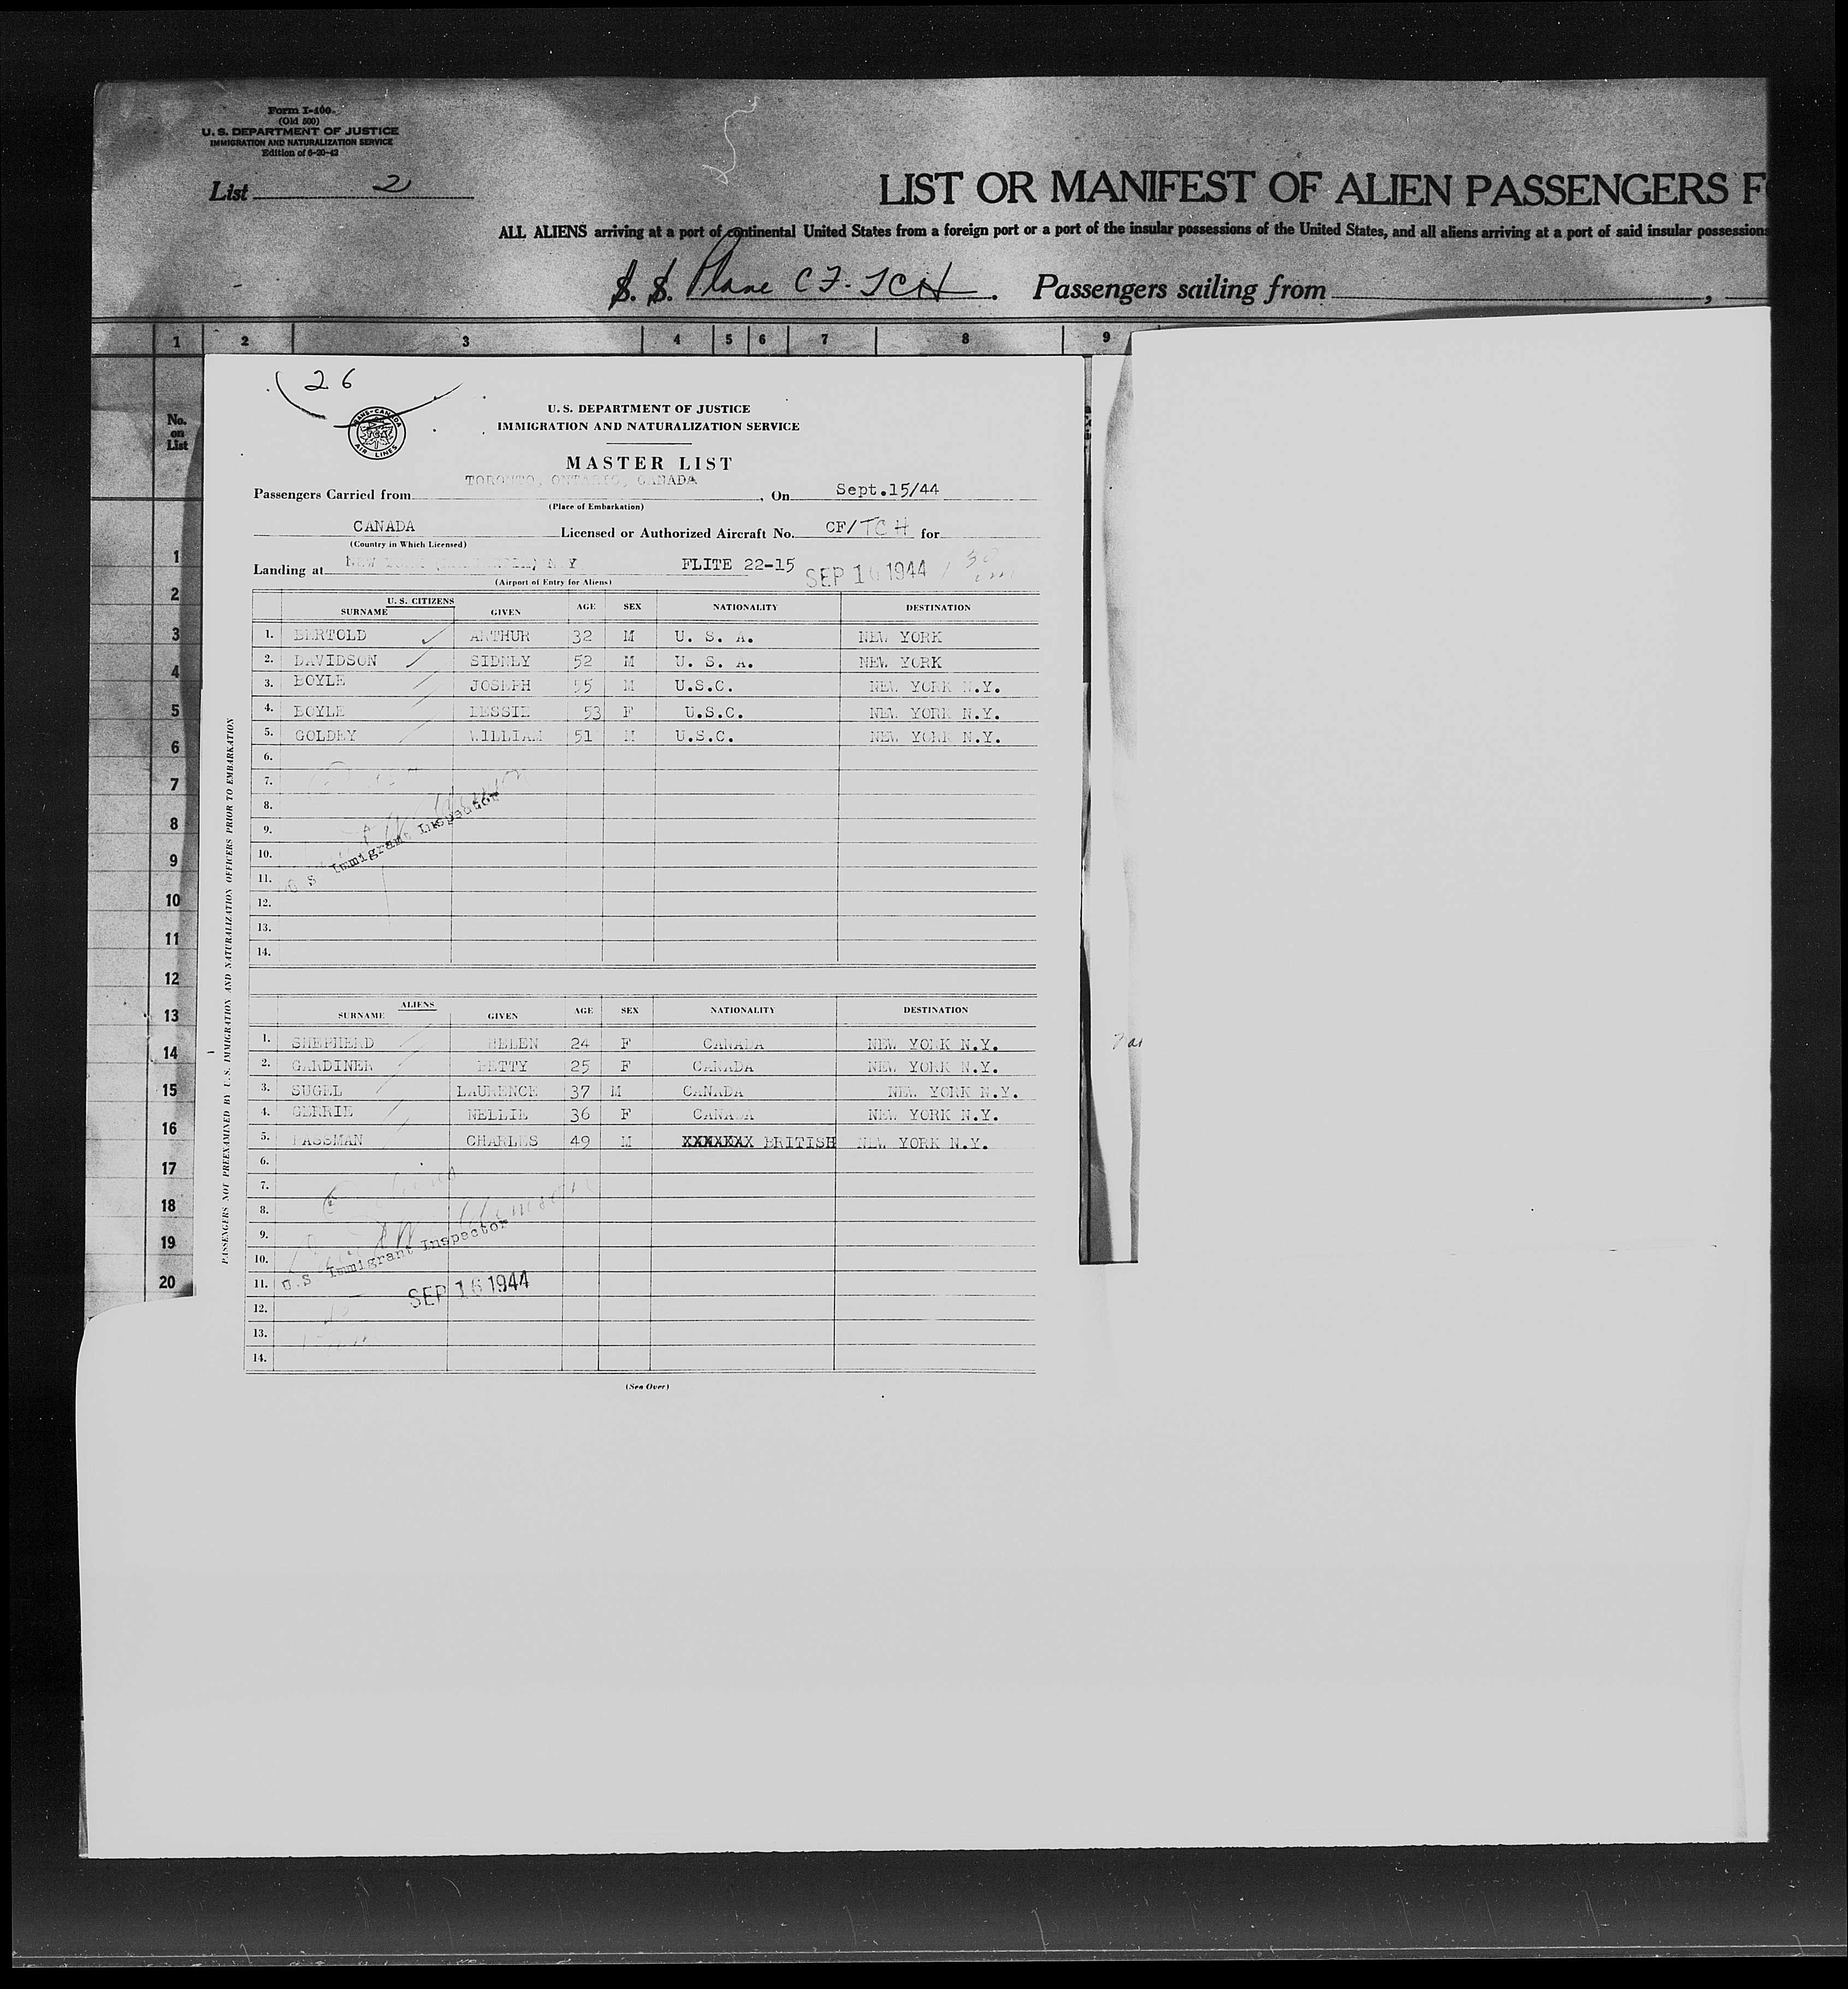 Form I-400
(Old 500)
U. S. DEPARTMENT OF JUSTICE
IMMIGRATION AND NATURALIZATION SERVICE
Edition of 6-20-42
List 2
LIST OR MANIFEST OF ALIEN PASSENGERS F
ALL ALIENS arriving at a port of continental United States from a foreign port or a port of the insular possessions of the United States, and all aliens arriving at a port of said insular possessions
S. S. Plane CF-TCH. Passengers sailing from ,
1 2 3 4 5 6 7 8 9
No. on List
26
TRANS-CANADA AIR LINES
U. S. DEPARTMENT OF JUSTICE
IMMIGRATION AND NATURALIZATION SERVICE
MASTER LIST
Passengers Carried from TORONTO, ONTARIO, CANADA, On Sept.15/44
(Place of Embarkation)
CANADA Licensed or Authorized Aircraft No. CF/TCH for
(Country in Which Licensed)
Landing at NEW N Y FLITE 22-15 SEP 16 1944
(Airport of Entry for Aliens)
U. S. CITIZENS
SURNAME GIVEN AGE SEX NATIONALITY DESTINATION
1. BERTOLD ARTHUR 32 M U. S. A. NEW YORK
2. DAVIDSON SIDNEY 52 M U. S. A. NEW YORK
3. BOYLE JOSEPH 55 M U.S.C. NEW YORK N.Y.
4. BOYLE BESSIE 53 F U.S.C. NEW YORK N.Y.
5. GOLDEY WILLIAM 51 M U.S.C. NEW YORK N.Y.
6.
7.
8.
9.
10.
11.
12.
13.
14.
U S Immigrant Inspector
ALIENS
SURNAME GIVEN AGE SEX NATIONALITY DESTINATION
1. SHEPHERD HELEN 24 F CANADA NEW YORK N.Y.
2. GARDINER BETTY 25 F CANADA NEW YORK N.Y.
3. SUGEL LAURENCE 37 M CANADA NEW YORK N.Y.
4. GERRIE NELLIE 36 F CANADA NEW YORK N.Y.
5. PASSMAN CHARLES 49 M XXXXXXX BRITISH NEW YORK N.Y.
6.
7.
8.
9.
10.
11.
12.
13.
14.
U.S Immigrant Inspector
SEP 16 1944
(See Over)
PASSENGERS NOT PREEXAMINED BY U. S. IMMIGRATION AND NATURALIZATION OFFICERS PRIOR TO EMBARKATION
1
2
3
4
5
6
7
8
9
10
11
12
13
14
15
16
17
18
19
20